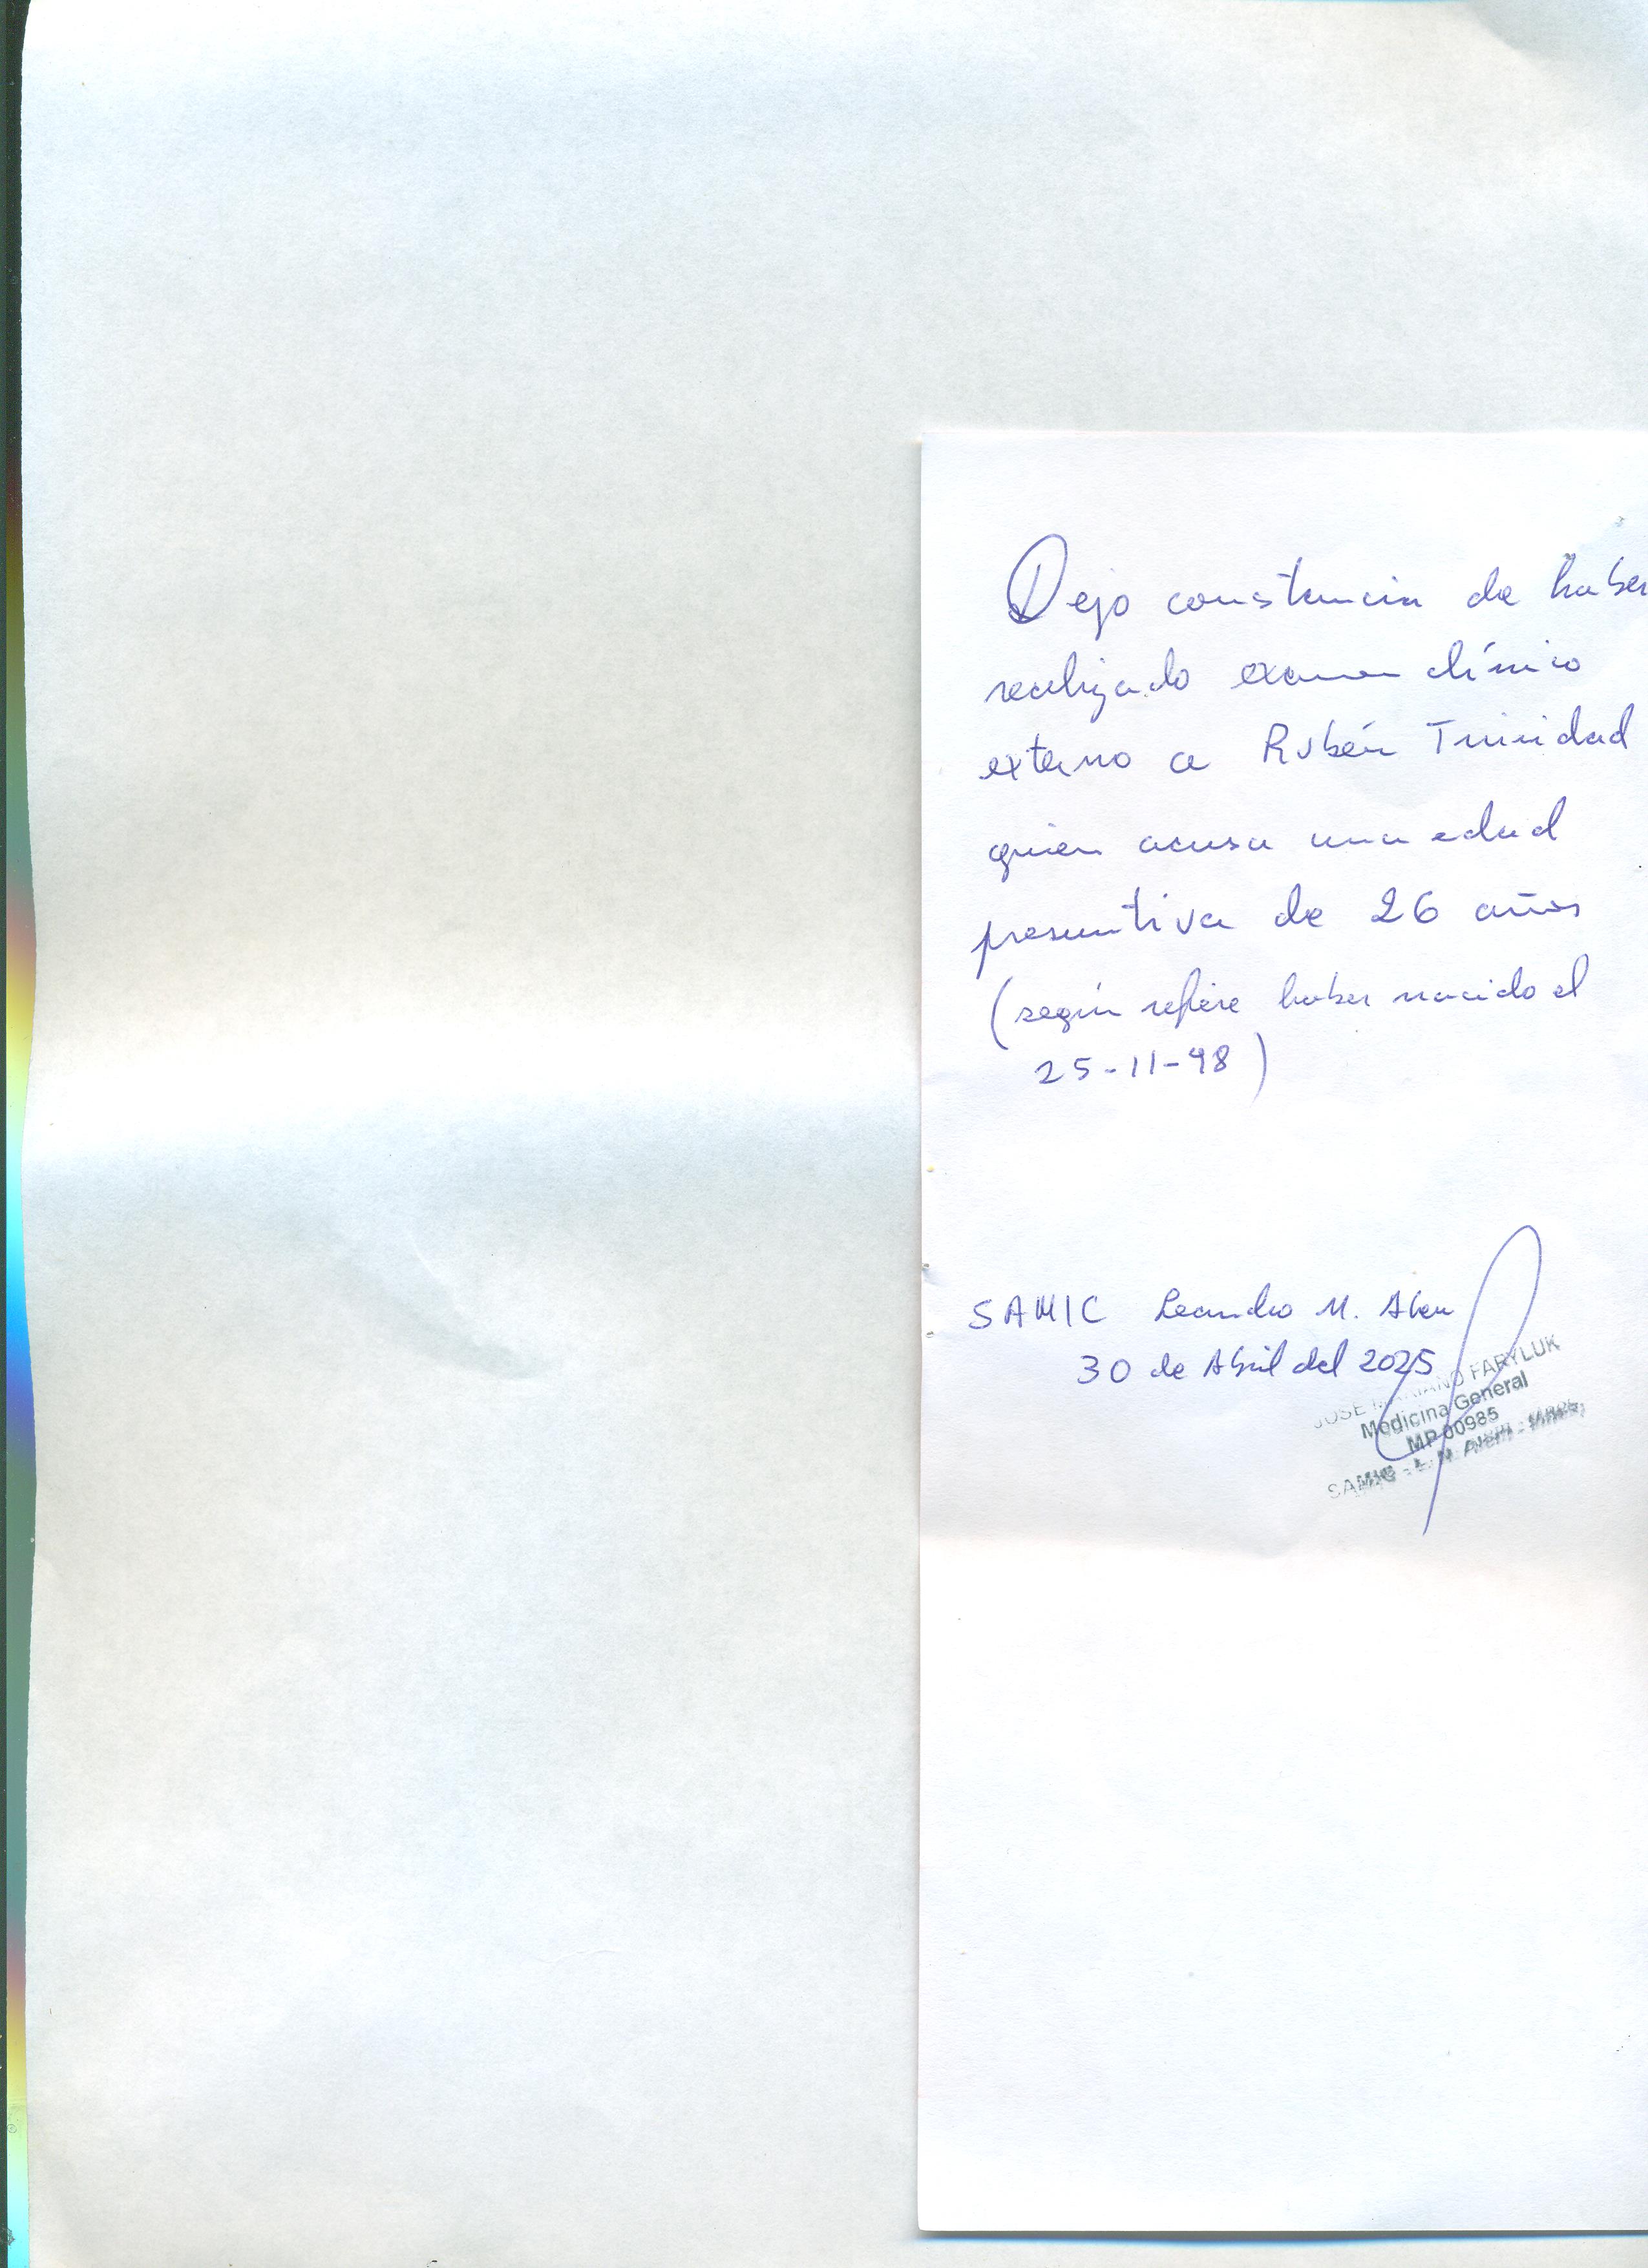 Dejo constancia de haber
realizado examen clínico
externo a Rubén Trinidad
quien acusa una edad
presuntiva de 26 años
(según refiere haber nacido el
25-11-98)
SAMIC Leandro N. Alem
30 de Abril del 2025
JOSE MARIANO FARYLUK
Medicina General
MP 00985
SAMIC - L. N. Alem -